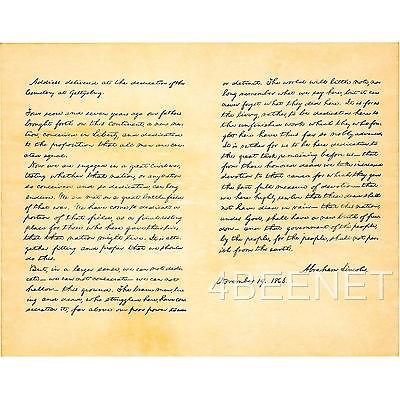 Address delivered at the dedication of the
Cemetery at Gettysburg.
Four score and seven years ago our fathers
brought forth on this continent, a new na-
tion, conceived in Liberty, and dedicated
to the proposition that all men are cre-
ated equal.
Now we are engaged in a great civil war,
testing whether that nation, or any nation
so conceived and so dedicated, can long
endure. We are met on a great battle-field
of that war. We have come to dedicate a
portion of that field, as a final resting
place for those who here gave their lives,
that that nation might live. It is alto-
gether fitting and proper that we should
do this.
But, in a larger sense, we can not dedi-
cate—we can not consecrate—we can not
hallow—this ground. The brave men, liv-
ing and dead, who struggled here, have con-
secrated it, far above our poor power to add
or detract. The world will little note, nor
long remember what we say here, but it can
never forget what they did here. It is for us
the living, rather, to be dedicated here to
the unfinished work which they who fou-
ght here have thus far so nobly advanced.
It is rather for us to be here dedicated to
the great task remaining before us—that
from these honored dead we take increased
devotion to that cause for which they gave
the last full measure of devotion—that
we here highly resolve that these dead shall
not have died in vain—that this nation,
under God, shall have a new birth of free-
dom—and that government of the people,
by the people, for the people, shall not per-
ish from the earth.
Abraham Lincoln.
November 19, 1863.
4BEENET